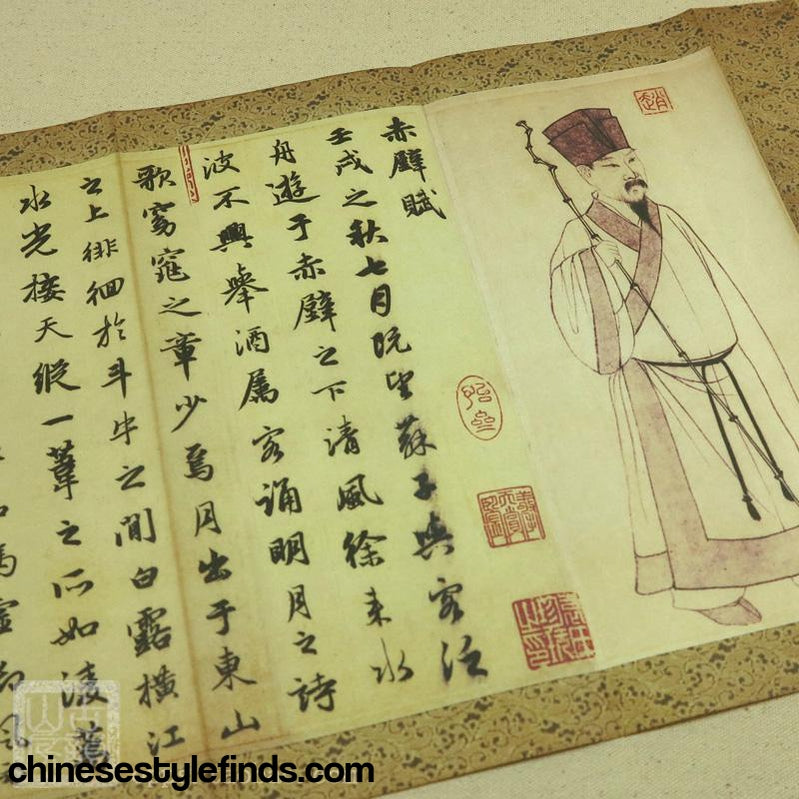 赤壁賦
壬戌之秋七月既望蘇子與客泛
舟遊于赤壁之下清風徐來水
波不興舉酒属客誦明月之詩
歌窈窕之章少焉月出于東山
之上徘徊於斗牛之間白露橫江
水光接天縱一葦之所如凌萬
趙
chinesestylefinds.com